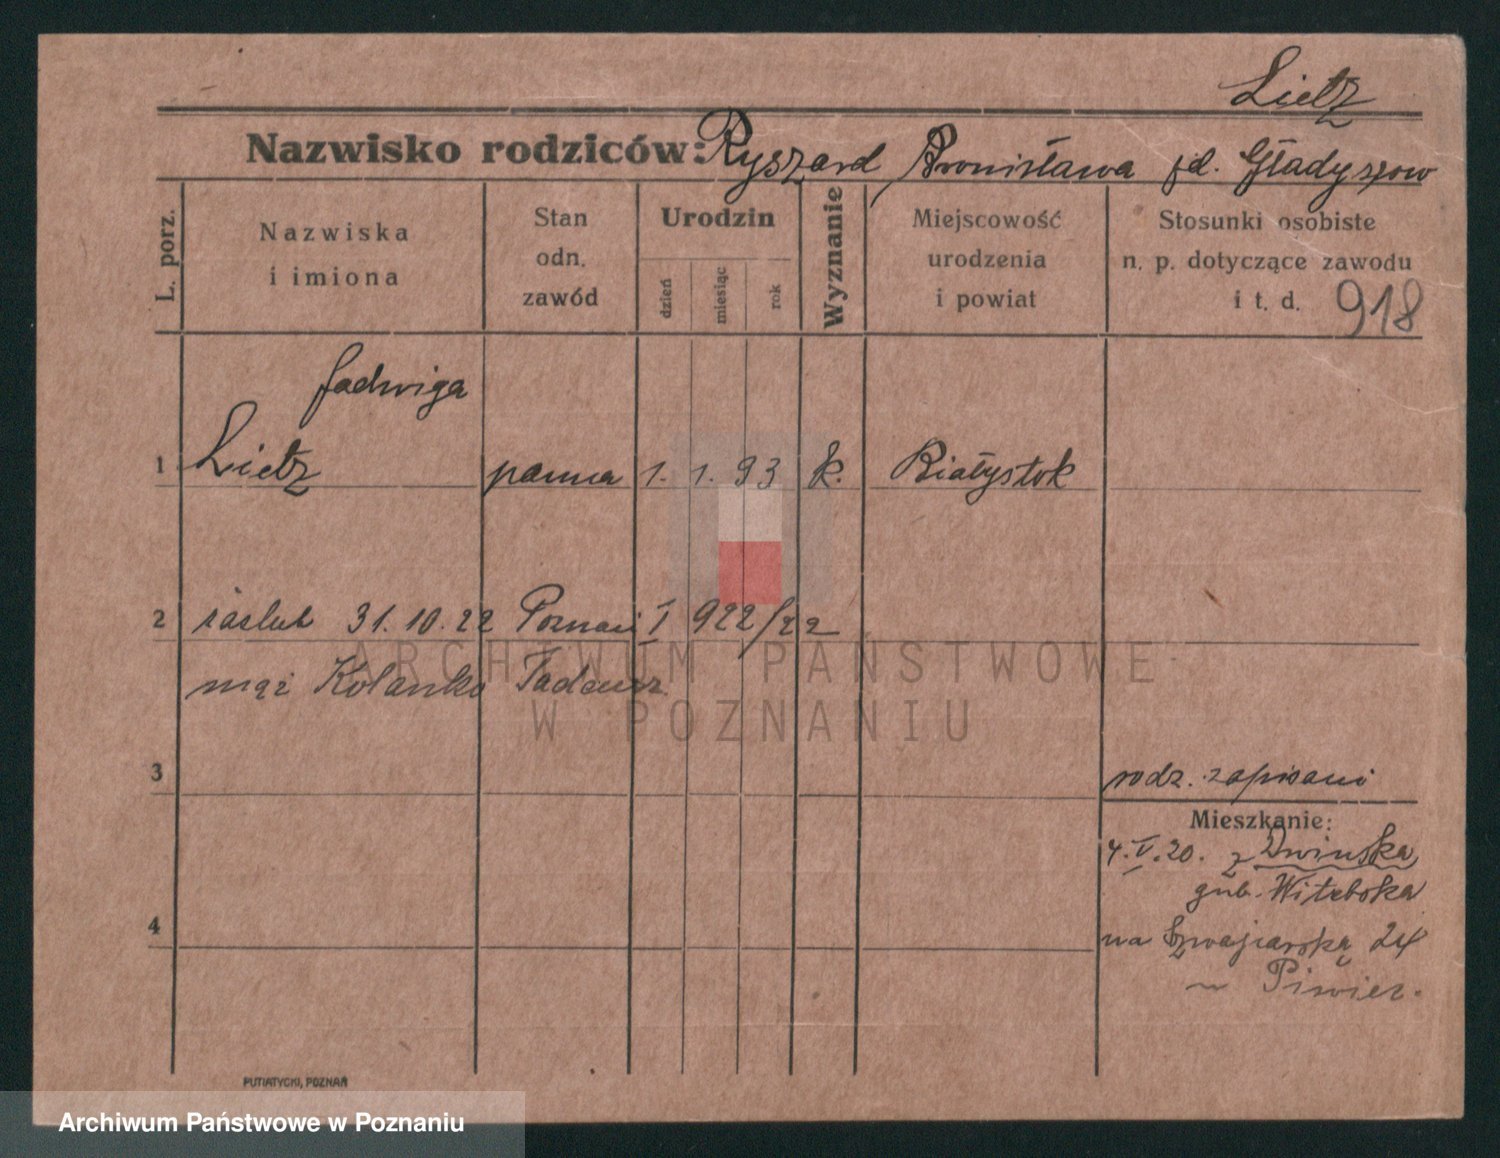 Lietz
Nazwisko rodziców: Ryszard Bronisława
L. porz.
Nazwiska
i imiona
Stan
odn.
zawód
Urodzin
dzień
miesiąc
rok
Wyznanie
Miejscowość
urodzenia
i powiat
Stosunki osobiste
n. p. dotyczące zawodu
i t. d. 918
Jadwiga
1 Lietz panna 1. 1. 93 k. Białystok
2 zaślub 31. 10. 22 Poznań I 922/22
mąż Kolanko Tadeusz
3 rodz. zapisani
Mieszkanie:
4. V. 20. z Dwinska
gub. Witebska
4 na Szwajcarską 24
PUTIATYCKI, POZNAŃ
ARCHIWUM PAŃSTWOWE
W POZNANIU
Archiwum Państwowe w Poznaniu